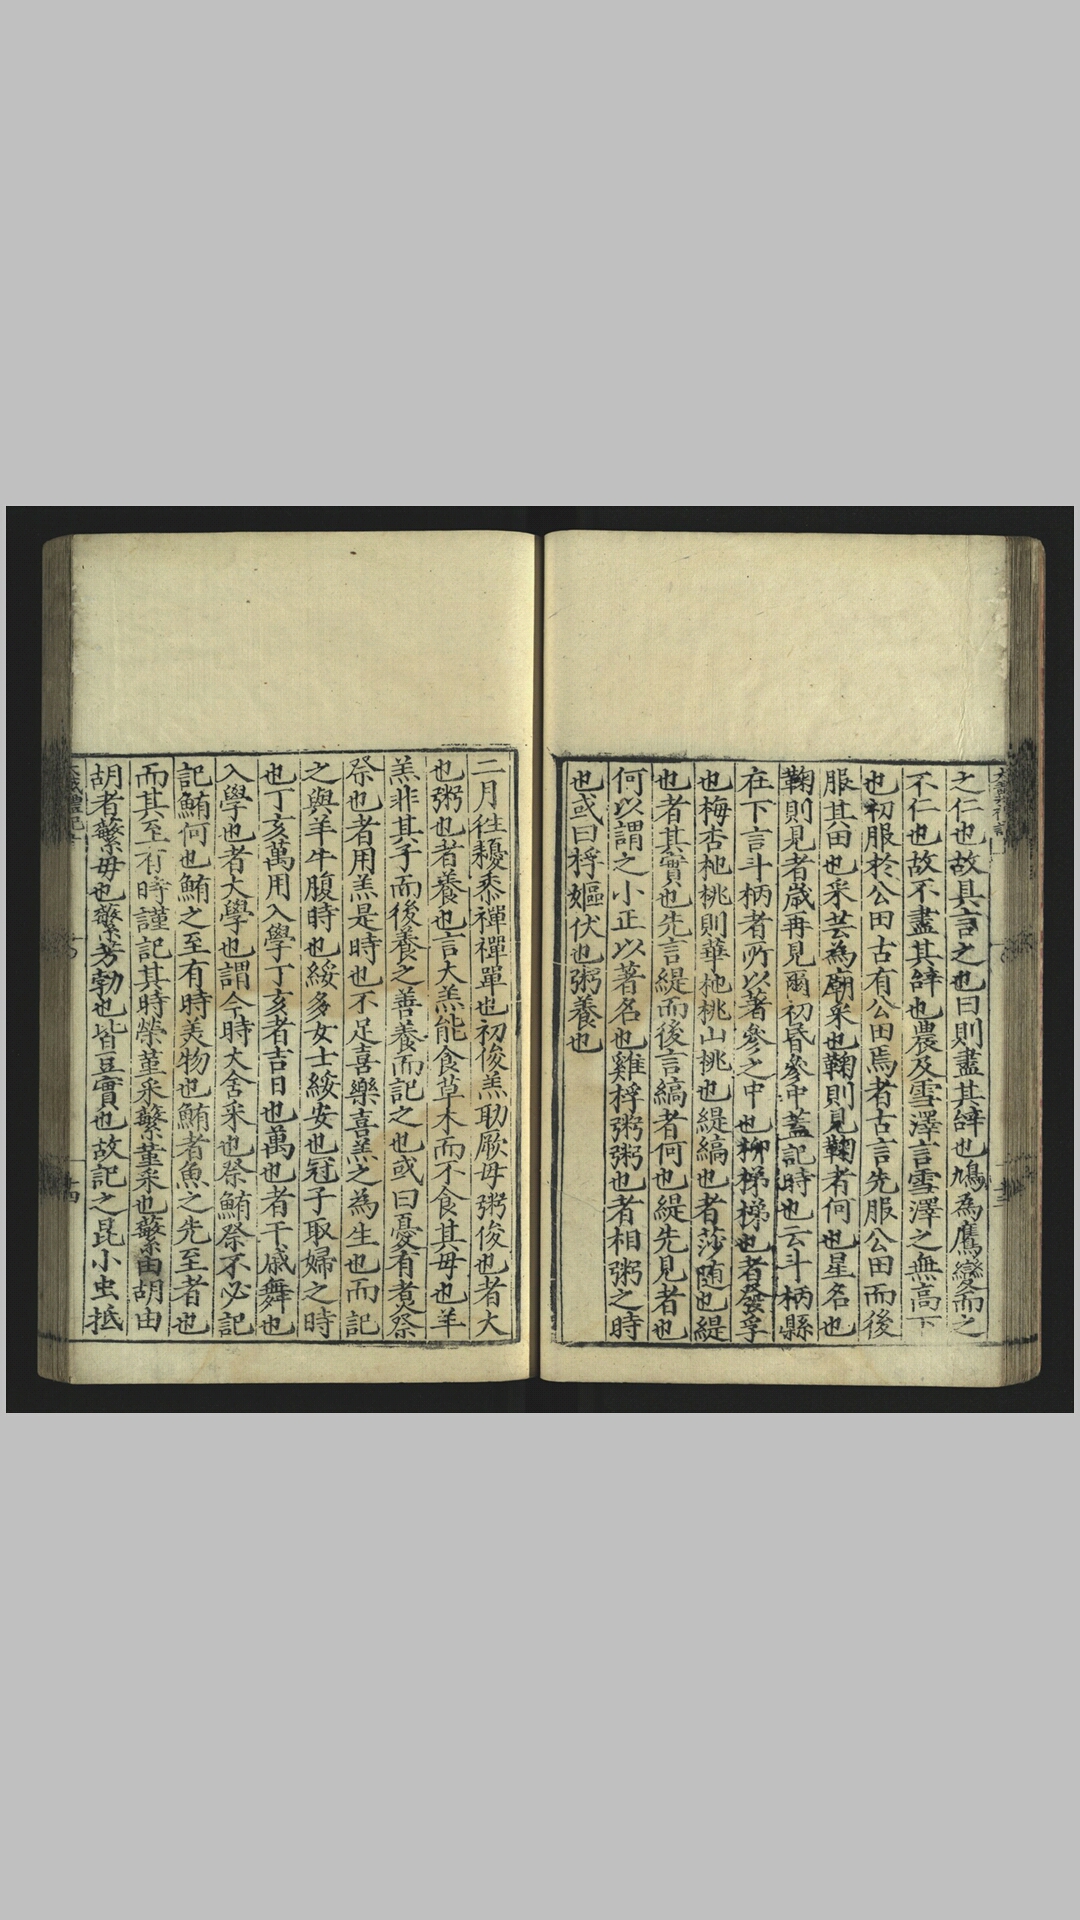 之仁也故具言之也曰則盡其辝也鳩為鷹變而之
不仁也故不盡其辝也農及雪澤言雪澤之無高下
也初服於公田古有公田焉者古言先服公田而後
服其田也采芸為廟采也鞠則見鞠者何也星名也
鞠則見者歳再見爾初昏參中蓋記時也云斗柄縣
在下言斗柄者所以著參之中也柳稊稊也者發孚
也梅杏杝桃則華杝桃山桃也緹縞也者莎随也緹
也者其實也先言緹而後言縞者何也緹先見者也
何以謂之小正以著名也雞桴粥粥也者相粥之時
也或曰桴嫗伏也粥養也
二月徃耰黍禪禪單也初俊羔助厥母粥俊也者大
也粥也者養也言大羔能食草木而不食其母也羊
羔非其子而後養之善養而記之也或曰憂有煮祭
祭也者用羔是時也不足喜樂喜羔之為生也而記
之與羊牛腹時也綏多女士綏安也冠子取婦之時
也丁亥萬用入學丁亥者吉日也萬也者干戚舞也
入學也者大學也謂今時大舍采也祭鮪祭不必記
記鮪何也鮪之至有時美物也鮪者魚之先至者也
而其至有時謹記其時榮菫采蘩菫采也蘩由胡由
胡者蘩母也蘩芳勃也皆豆實也故記之昆小虫抵